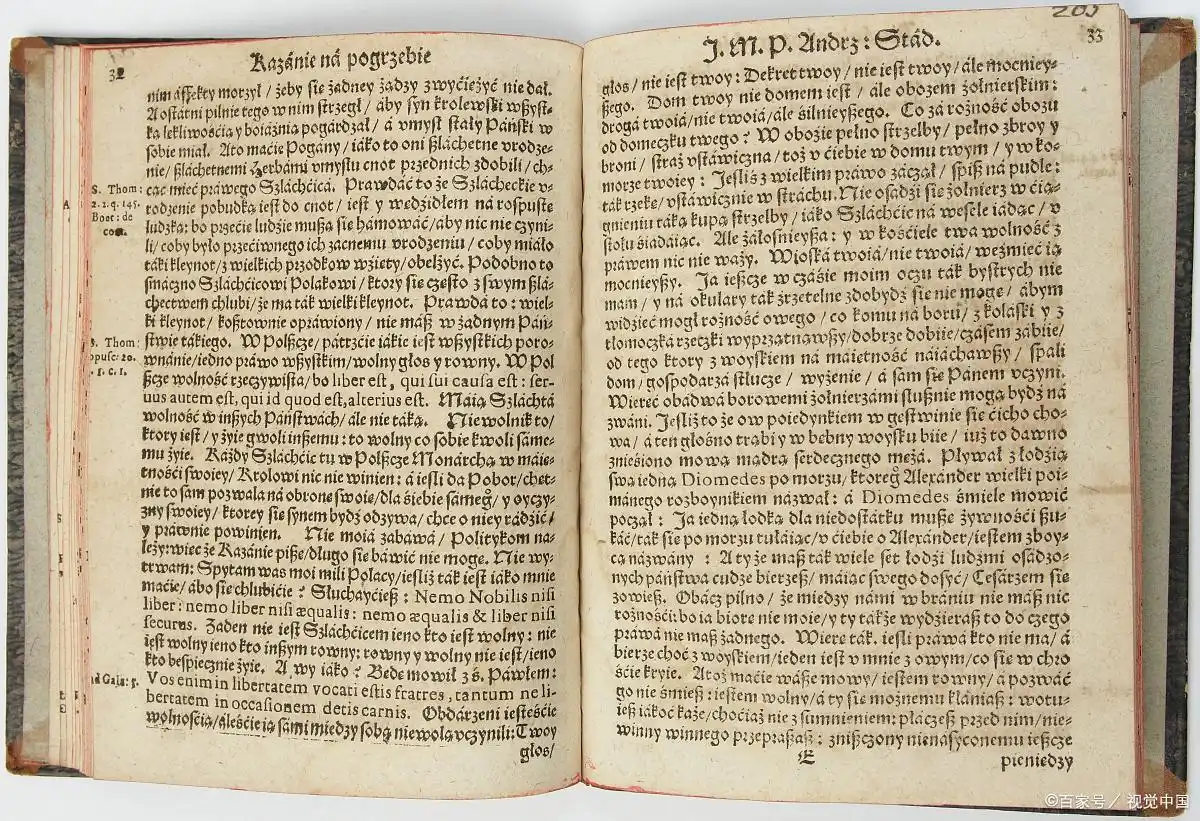 32
Kazánie ná pogrzebie
nim áffekty morzył / żeby się żadney żądzy zwyćiężyć nie dał.
A ostátni pilnie tego w nim strzegł / aby syn krolewski wszyst-
ką lękliwośćią y boiáźnią pogárdzał / á vmysł stały Páński w
sobie miał. Ato maćie Pogány / iáko to oni szláchetne vrodze-
nie / szláchetnemi Herbámi vmysłu cnot przednich zdobili / ch-
cąc mieć práwego Szláchćicá. Prawdáć to że Szlácheckie v-
rodzenie pobudką iest do cnot / iest y wędźidłem ná rospustę
ludzką: bo przećie ludzie muszą się hámowáć / áby nic nie czyni-
li / coby było przećiwnego ich zacnemu vrodzeniu / coby miáło
táki kleynot / z wielkich przodkow wźięty / obelżyć. Podobno to
smáczno Szláchćicowi Polakowi / ktory się często z swym szlá-
chectwem chlubi / że ma ták wielki kleynot. Prawdá to: wiel-
ki kleynot / kosztownie opráwiony / niemász w żadnym Páń-
stwie tákiego. W Polszcze / pátrzćie iákie iest wszystkich poro-
wnánie / iedno práwo wszystkim / wolny głos y rowny. W Pol
szcze wolność rzeczywista / bo liber est, qui sui causa est: ser-
uus autem est, qui id quod est, alterius est. Máią Szláchtá
wolność w inszych Páństwách / ále nie táką. Niewolnik to /
ktory iest / y żyie gwoli inszemu: to wolny co sobie kwoli sáme-
mu żyie. Káżdy Szláchćic tu w Polszcze Monárchą w máie-
tnośći swoiey / Krolowi nic nie winien: á iesli da Pobor / chęt-
nie to sam pozwala ná obronę swoię / dla śiebie sámeg / y oyczy-
zny swoiey / ktorey się synem bydź odzywa / chce o niey rádźić /
y práwnie powinien. Nie moiá zabáwá / Politykom na-
leży: więc że Kazánie piszę / długo się báwić nie mogę. Nie wy-
trwam: Spytam was moi mili Polacy / iesliż ták iest iáko mnie
maćie / ábo się chlubićie? Słuchayćiesz: Nemo Nobilis nisi
liber: nemo liber nisi æqualis: nemo æqualis & liber nisi
securus. Żaden nie iest Szláchćicem ieno kto iest wolny: nie
iest wolny ieno kto inszym rowny: rowny y wolny nie iest / ieno
kto bespiecznie żyie. A wy iáko? Będę mowił z ś. Páwłem:
Vos enim in libertatem vocati estis fratres, tantum ne li-
bertatem in occasionem detis carnis. Obdárzeni iesteśćie
wolnośćią / áleśćie ią sámi między sobą niewolą vczynili: Twoy
głos /
S. Thom:
2. 2. q. 145.
Boet: de
com.
S. Thom:
opusc: 20.
1. c. 1.
ad Gala: 5.
203
J. M. P. Andrz: Stád.
33
głos / nie iest twoy: Dekret twoy / nie iest twoy / ále mocniey-
szego. Dom twoy nie domem iest / ále obozem żołnierskim:
drogá twoiá / nie twoiá / ále śilnieyszego. Co zá rożność obozu
od domeczku twego? W oboźie pełno strzelby / pełno zbroy y
broni / straż vstáwiczna / toż v ćiebie w domu twym / y w ko-
morze twoiey: Jesliś z wielkim práwo záczął / spisz ná pudle:
ták rzekę / vstáwicznie w stráchu. Nie osádźi się żołnierz w ćią-
gnieniu táką kupą strzelby / iáko Szláchćic ná wesele iádąc / v
stołu śiadáiąc. Ale żáłosnieysza: y w kośćiele twá wolność z
práwem nic nie waży. Wioská twoiá / nie twoiá / weźmieć ią
mocnieyszy. Ja ieszcze w czáśie moim oczu ták bystrych nie
mam / y ná okulary ták źrzetelne zdobydź się nie mogę / ábym
widźieć mogł rożność owego / co komu ná boru / z kolaski y z
tłomoczká rzeczki wyprzątnąwszy / dobrze dobiie / czásem zábiie /
od tego ktory z woyskiem ná máiętność náiáchawszy / spali
dom / gospodarzá stłucze / wyżenie / á sam się Pánem vczyni.
Wiereć obádwá borowemi żołnierzámi słusznie mogą bydź ná
zwáni. Jesliż to że ow poiedynkiem w gęstwinie się ćicho cho-
wa / á ten głośno trąbi y w bębny woysku biie / iuż to dawno
znieśiono mową mądrą serdecznego mężá. Pływał z łodźią
swą iedną Diomedes po morzu / ktoreg Alexánder wielki poi-
mánego rozboynikiem názwał: á Diomedes śmiele mowić
począł: Ja iedną łodką dla niedostátku muszę żywnośći szu-
káć / ták się po morzu tułáiąc / v ćiebie o Alexánder / iestem zboy-
cą názwány: A ty że masz ták wiele set łodźi ludźmi osádzo-
nych páństwá cudze bierzesz / máiąc swego dosyć / Cesárzem się
zowiesz. Obacz pilno / że między námi w brániu nie mász nic
rożnośći: bo ia biorę nie moie / y ty tákże wydźierasz to do czego
práwá nie masz żadnego. Wierę ták. iesli práwá kto nie ma / á
bierze choć z woyskiem / ieden iest v mnie z owym / co się w chro
śćie kryie. Atoż maćie wásze mowy / iestem rowny / á pozwáć
go nie śmiesz: iestem wolny / á ty się możnemu kłániasz: wotu-
iesz iákoć każe / choćiaż nie z sumnieniem: płáczesz przed nim / nie-
winny winnego przeprászasz: zniszczony nienásyconemu ieszcze
E
pieniędzy
©百家号／视觉中国